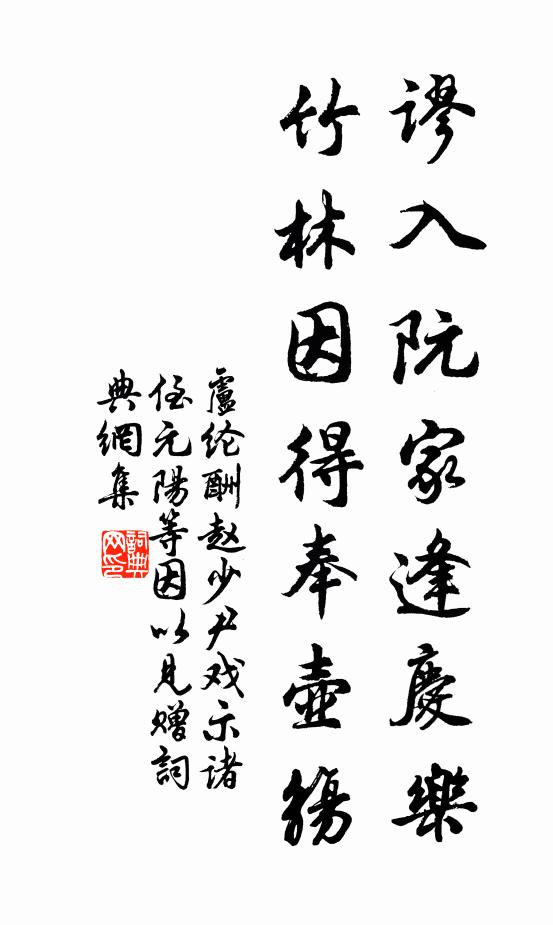 谬入阮家逢慶樂
竹林因得奉壺觴
盧纶酬赵少尹戏示诸
侄元陽等因以见赠詞
典網集
詞典
网印